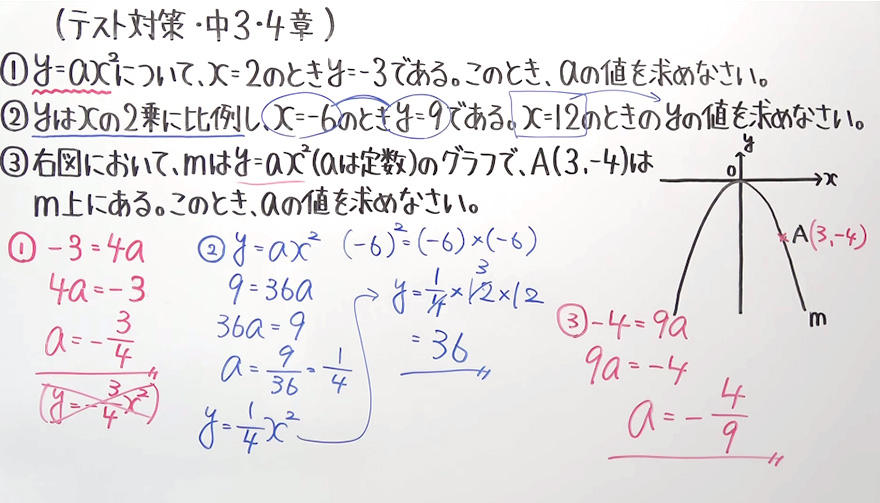 (テスト対策・中3・4章)
①y=ax²について、x=2のときy=-3である。このとき、aの値を求めなさい。
②yはxの2乗に比例し、x=-6のときy=9である。x=12のときのyの値を求めなさい。
③右図において、mはy=ax²(aは定数)のグラフで、A(3,-4)は
m上にある。このとき、aの値を求めなさい。
y
O
x
A(3,-4)
m
① -3=4a
4a=-3
a=-3/4
(y=-3/4x²)
② y=ax² (-6)²=(-6)×(-6)
9=36a
36a=9
a=9/36=1/4
y=1/4x²
y=1/4×12×12
3
=36
③ -4=9a
9a=-4
a=-4/9